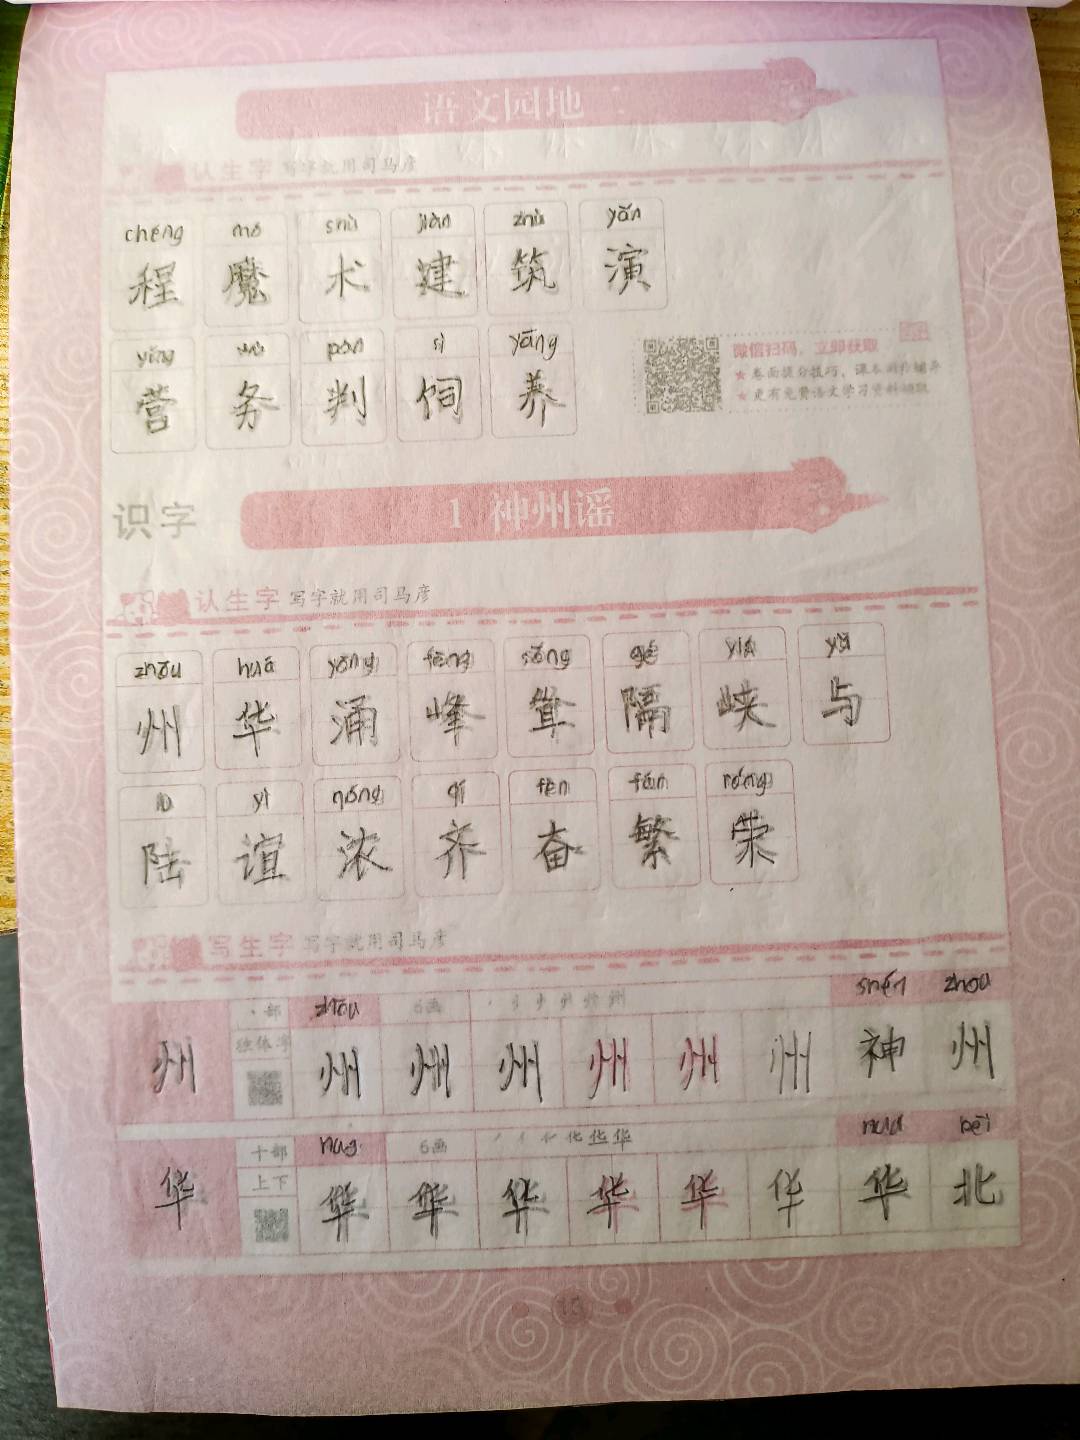 语文园地二
认生字 写字就用司马彦
chéng mó shù jiàn zhù yǎn
程 魔 术 建 筑 演
yíng wù pàn sì yǎng
营 务 判 饲 养
微信扫码，立即获取
★ 卷面提分技巧、课本同步辅导
★ 更有免费语文学习资料领取
识字
1 神州谣
认生字 写字就用司马彦
zhōu huá yǒng fēng sǒng gé xiá yǔ
州 华 涌 峰 耸 隔 峡 与
lù yì nóng qí fèn fán róng
陆 谊 浓 齐 奋 繁 荣
写生字 写字就用司马彦
、部 zhōu 6画 shén zhou
州 独体字 州 州 州 州 州 州 神 州
十部 huá 6画 华 huá běi
华 上下 华 华 华 华 华 华 华 北
15